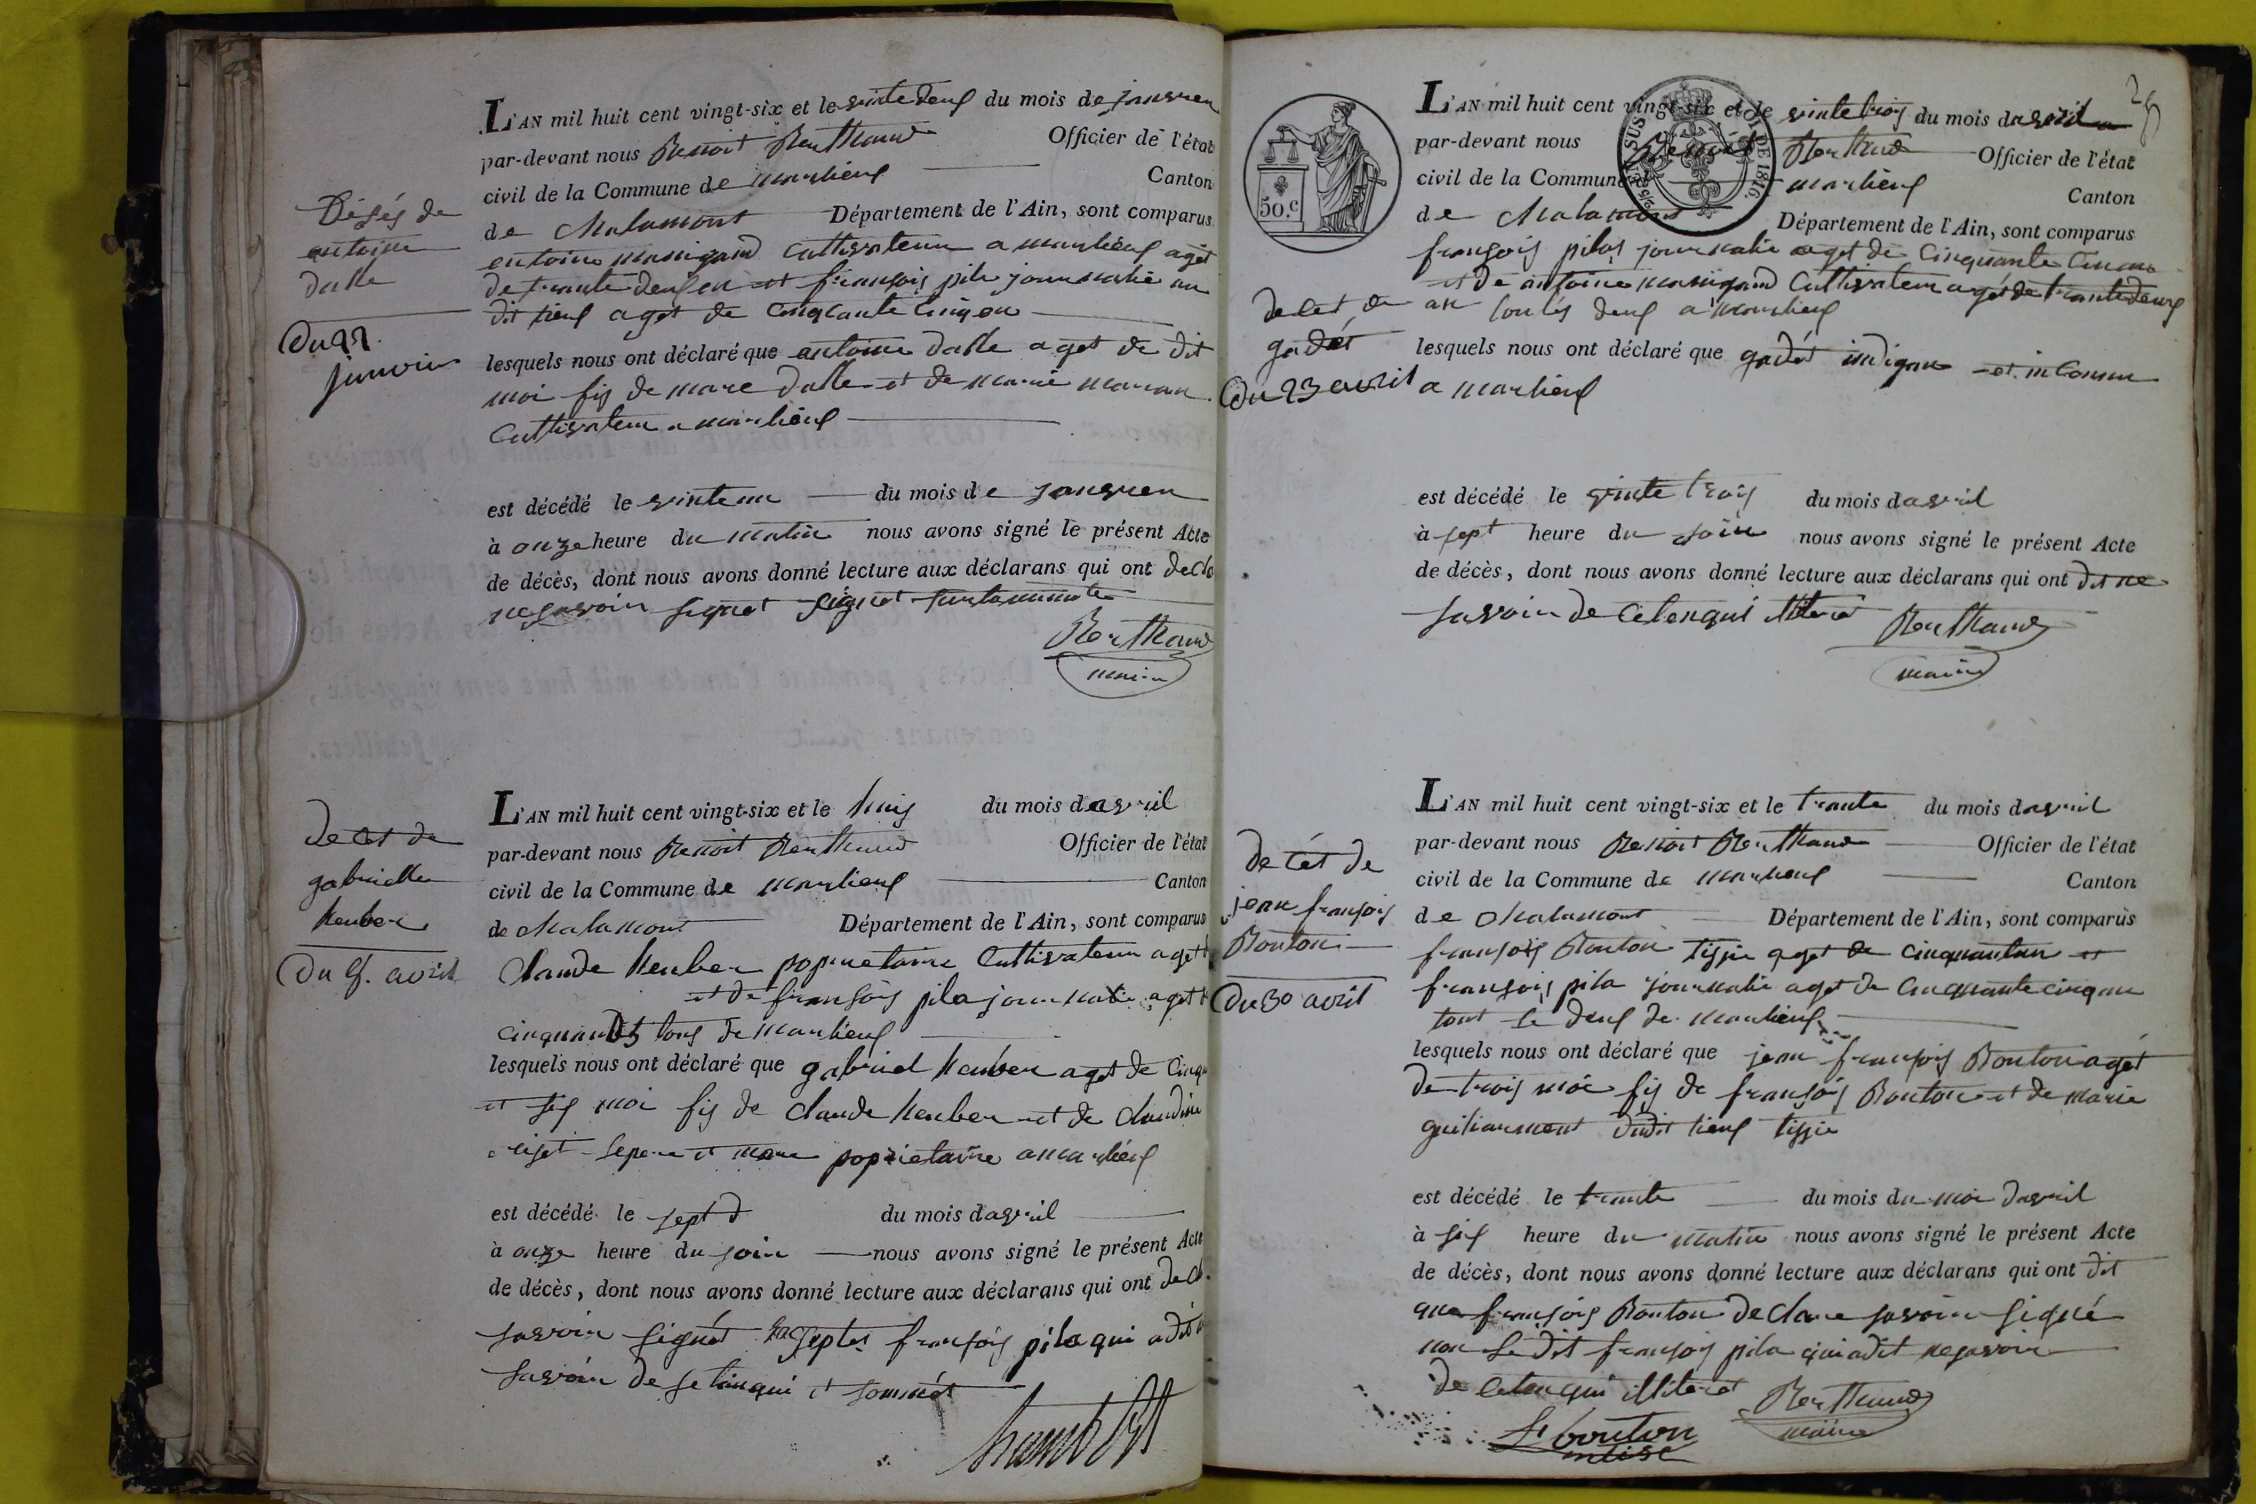 L'AN mil huit cent vingt-six et le vinte deux du mois de janvier
par-devant nous Benoit Berthaud Officier de l'état
civil de la Commune de marlieux Canton
de Chalamont Département de l'Ain, sont comparus
antoine manigand cultivateur a marlieux aget
de trante deux an et françois pila journalie au
dit lieux aget de cinqante cinq an
lesquels nous ont déclaré que antoine dalle aget de dit
moi fis de marc dalle et de marie
cultivateur a marlieux
est décédé le vinte un du mois de janvier
à onze heure du matin nous avons signé le présent Acte
de décès, dont nous avons donné lecture aux déclarans qui ont decla
ne savoir signet signet sur la minute
Berthaud
maire
Désés de
antoine
dalle
Du 22
janvier
L'AN mil huit cent vingt-six et le huis du mois d'avril
par-devant nous Benoit Berthaud Officier de l'état
civil de la Commune de marlieux Canton
de Chalamont Département de l'Ain, sont comparus
Claude heuber popriétaire cultivateur aget
et de françois pila journalie aget
tous de marlieux
lesquels nous ont déclaré que gabriel heuber aget de cinq
et sis moi fis de claude heuber et de claudine
le pere et mere popriétaire a marlieux
est décédé le sept d du mois d'avril
à onze heure du soir nous avons signé le présent Acte
de décès, dont nous avons donné lecture aux déclarans qui ont decla
savoir signét françois pila qui a dit
savoir de
decet de
gabrielle
heuber
Du 8. avril
25
50.c
SUS
DE 1816.
L'AN mil huit cent vingt-six et le vinte trois du mois d'avril
par-devant nous Benoit Berthaud Officier de l'état
civil de la Commune marlieux Canton
de Chalamont Département de l'Ain, sont comparus
françois pilas journalie aget de cinquante cinq
et de antoine manigand cultivateur agét de trante deux
an tous les deux a marlieux
lesquels nous ont déclaré que gadét indigan et inconnu
a marlieux
est décédé le vinte trois du mois d'avril
à sept heure du soir nous avons signé le présent Acte
de décès, dont nous avons donné lecture aux déclarans qui ont dit ne
savoir de ce
Berthaud
maire
decet de
gadét
Du 23 avril
L'AN mil huit cent vingt-six et le trante du mois d'avril
par-devant nous Benoit Berthaud Officier de l'état
civil de la Commune de marlieux Canton
de Chalamont Département de l'Ain, sont comparus
françois Bouton tissie aget de cinquantun et
françois pila journalie aget de cinquante cinq an
tout le deux de marlieux
lesquels nous ont déclaré que jean françois Bouton agét
de trois moi fis de françois Bouton et de marie
dudit lieux tissie
est décédé le trante du mois du moi d'avril
à six heure du matin nous avons signé le présent Acte
de décès, dont nous avons donné lecture aux déclarans qui ont dit
que françois Bouton declare savoir signé
non le dit françois pila qui a dit ne savoir
de illiteret
Berthaud
maire
f bouton
decét de
jean françois
Bouton
Du 30 avril